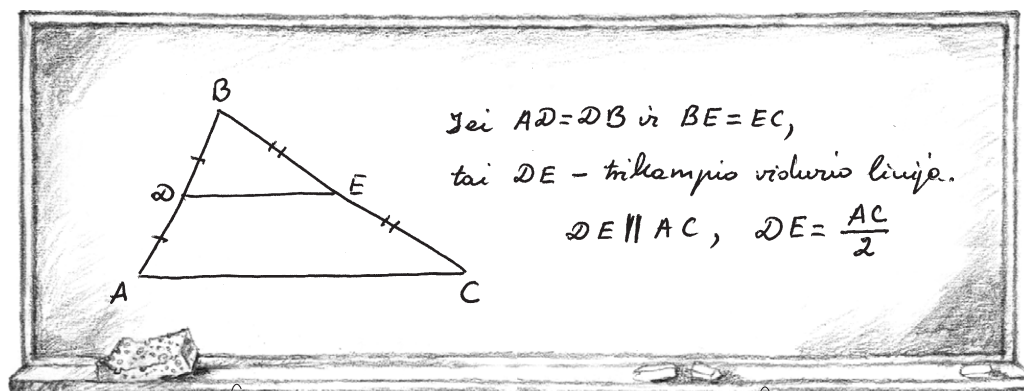 B
D
E
A
C
Jei AD=DB ir BE=EC,
tai DE – trikampio vidurio linija.
DE || AC, DE = AC/2